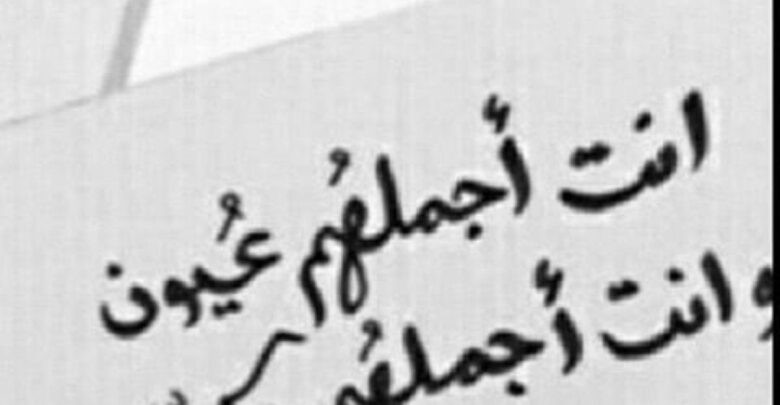 انت أجملهُم عُيون
و انت أجملهُم